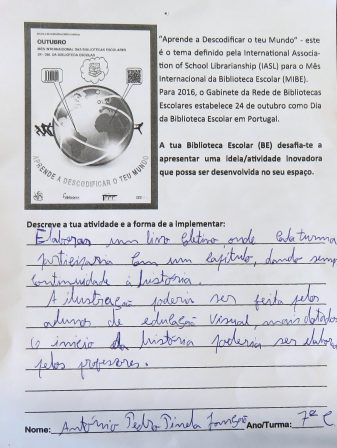 OUTUBRO
MÊS INTERNACIONAL DAS BIBLIOTECAS ESCOLARES
APRENDE A DESCODIFICAR O TEU MUNDO
"Aprende a Descodificar o teu Mundo" - este
é o tema definido pela International Associa-
tion of School Librarianship (IASL) para o Mês
Internacional da Biblioteca Escolar (MIBE).
Para 2016, o Gabinete da Rede de Bibliotecas
Escolares estabelece 24 de outubro como Dia
da Biblioteca Escolar em Portugal.
A tua Biblioteca Escolar (BE) desafia-te a
apresentar uma ideia/atividade inovadora
que possa ser desenvolvida no seu espaço.
Descreve a tua atividade e a forma de a implementar:
Elaborar um livro coletivo onde cada turma
participaria com um capítulo, dando semp
continuidade à história.
A ilustração poderia ser feita pelos
alunos de educação visual, mais dotados
O início da história poderia ser elabora
pelos professores.
Nome: António Pedro Ano/Turma: 7º C